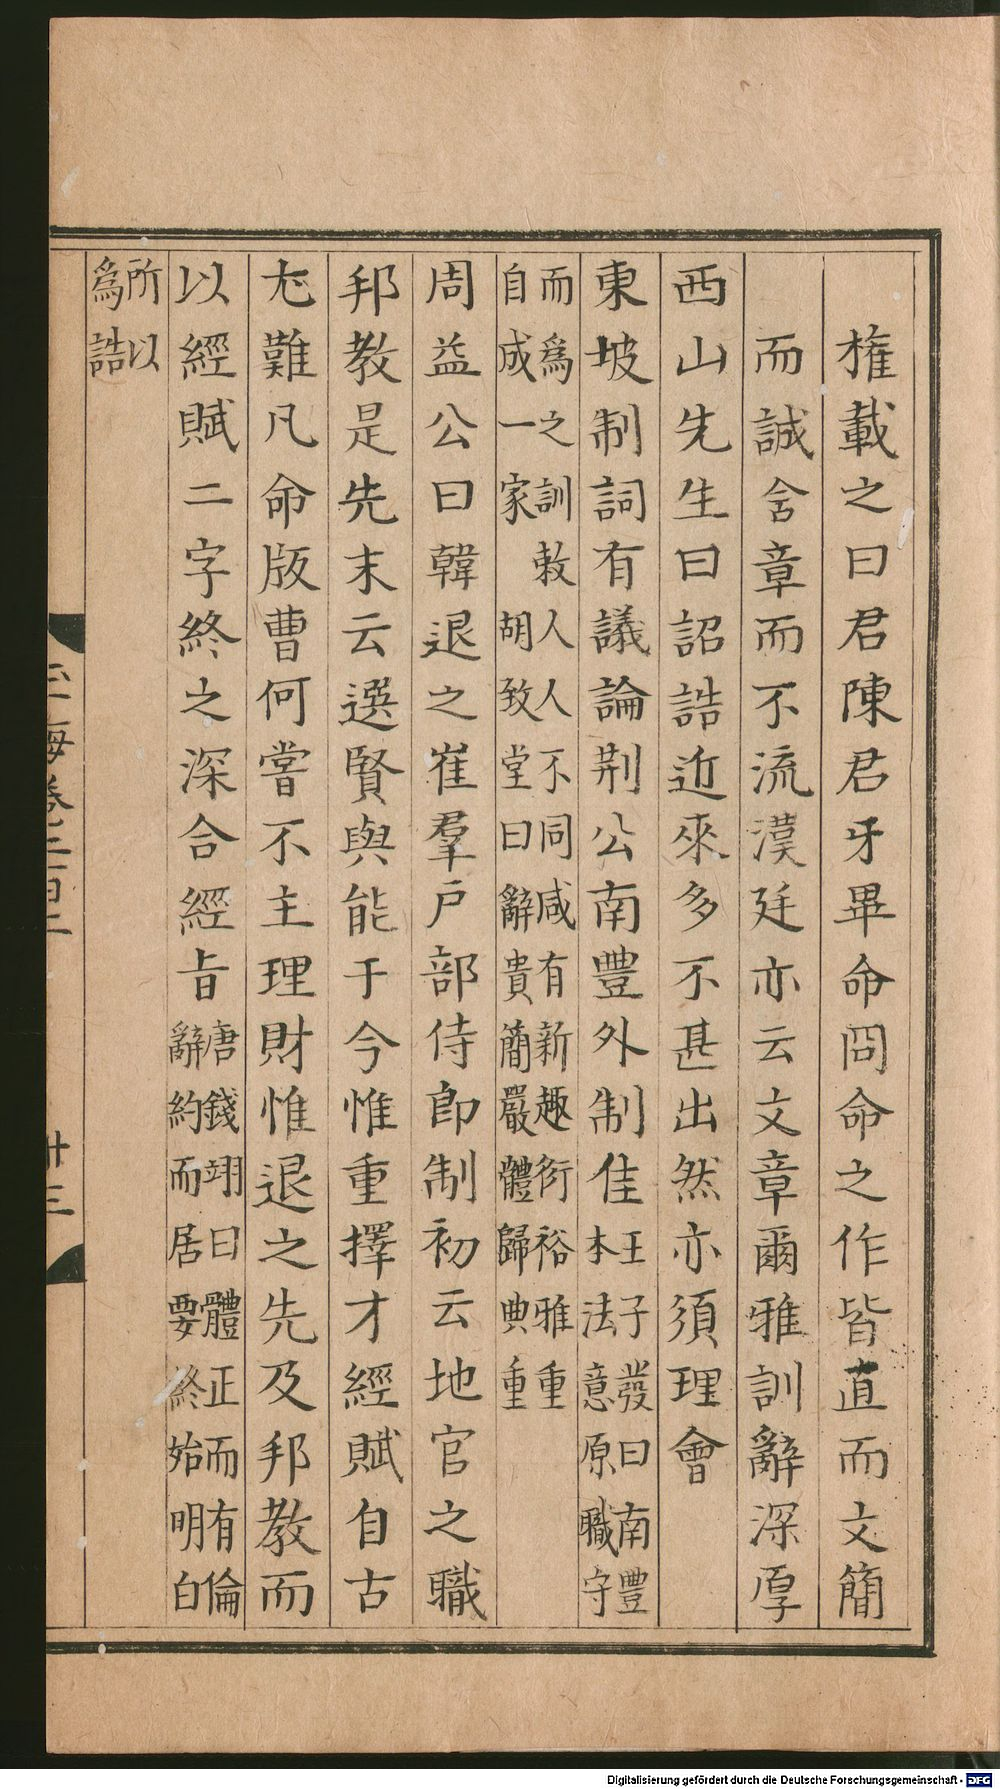 權載之曰君陳君牙畢命冏命之作皆直而文簡
而誠舍章而不流漢廷亦云文章爾雅訓辭深厚
西山先生曰詔誥近來多不甚出然亦須理會
東坡制詞有議論荆公南豐外制佳王子發曰南豐
本法意原職守
而爲之訓敕人人不同咸有新趣衍裕雅重
自成一家 胡致堂曰辭貴簡嚴體歸典重
周益公曰韓退之崔羣戶部侍郎制初云地官之職
邦教是先末云選賢與能于今惟重擇才經賦自古
尤難凡命版曹何嘗不主理財惟退之先及邦教而
以經賦二字終之深合經旨唐錢翊曰體正而有倫
辭約而居要終始明白
所以
爲誥
玉海卷二百二
廿三
Digitalisierung gefördert durch die Deutsche Forschungsgemeinschaft - DFG